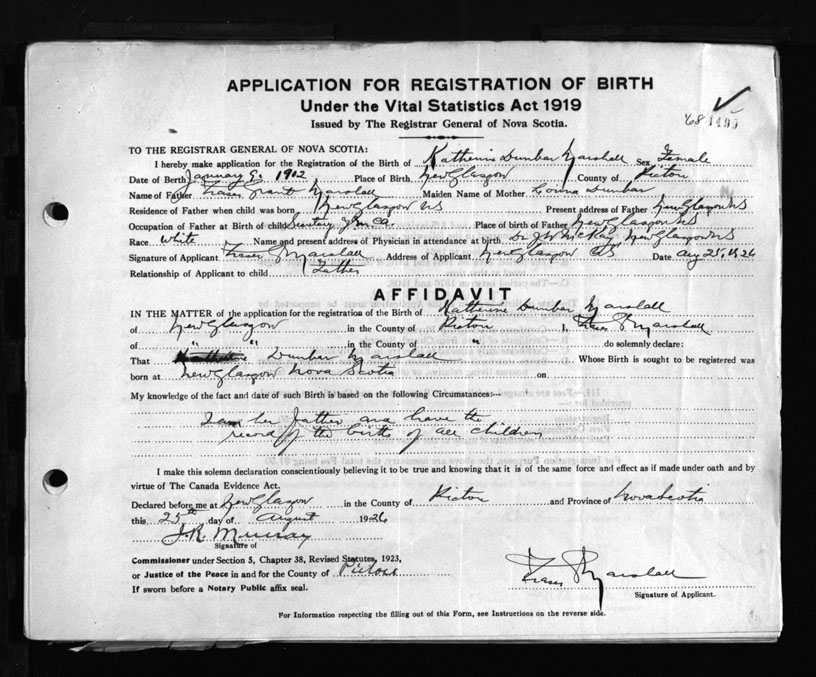 APPLICATION FOR REGISTRATION OF BIRTH
Under the Vital Statistics Act 1919
Issued by The Registrar General of Nova Scotia.
TO THE REGISTRAR GENERAL OF NOVA SCOTIA:
I hereby make application for the Registration of the Birth of Katherine Dunbar Marshall Sex Female
Date of Birth January 1902 Place of Birth New Glasgow County of Pictou
Name of Father Fraser Grant Marshall Maiden Name of Mother Dunbar
Residence of Father when child was born New Glasgow NS Present address of Father New Glasgow NS
Occupation of Father at Birth of child Secretary Y.M.C.A. Place of birth of Father New Glasgow NS
Race White Name and present address of Physician in attendance at birth Dr McKay New Glasgow NS
Signature of Applicant Fraser G Marshall Address of Applicant New Glasgow NS Date Aug 25, 1926
Relationship of Applicant to child Father
AFFIDAVIT
IN THE MATTER of the application for the registration of the Birth of Katherine Dunbar Marshall
of New Glasgow in the County of Pictou I, Fraser G Marshall
of " " in the County of " do solemnly declare:
That Dunbar Marshall Whose Birth is sought to be registered was
born at New Glasgow Nova Scotia on
My knowledge of the fact and date of such Birth is based on the following Circumstances:—
I am her father and have the
record of the births of all children
I make this solemn declaration conscientiously believing it to be true and knowing that it is of the same force and effect as if made under oath and by
virtue of The Canada Evidence Act.
Declared before me at New Glasgow in the County of Pictou and Province of Nova Scotia
this 25th day of August 1926
J.R. Murray
Signature of
Commissioner under Section 5, Chapter 38, Revised Statutes, 1923,
or Justice of the Peace in and for the County of Pictou
If sworn before a Notary Public affix seal.
Fraser G Marshall
Signature of Applicant.
For Information respecting the filling out of this Form, see Instructions on the reverse side.